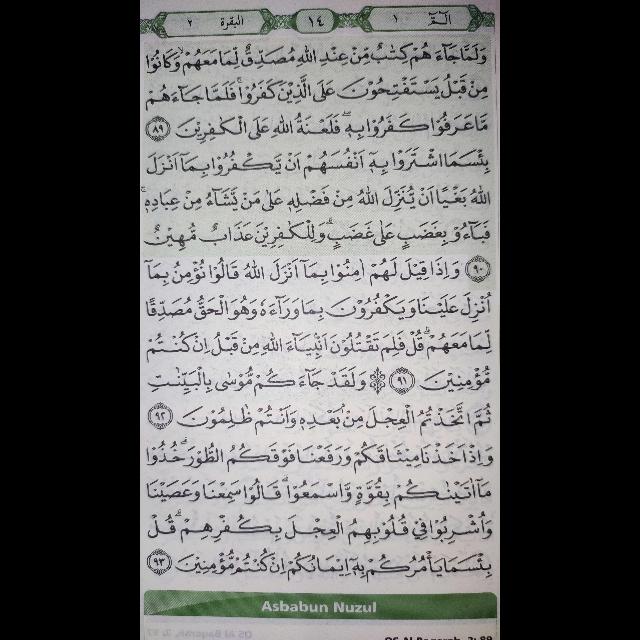 الٓمّٓ ١
١٤
البقرة ٢
وَلَمَّا جَاۤءَهُمْ كِتٰبٌ مِّنْ عِنْدِ اللّٰهِ مُصَدِّقٌ لِّمَا مَعَهُمْۙ وَكَانُوْا
مِنْ قَبْلُ يَسْتَفْتِحُوْنَ عَلَى الَّذِيْنَ كَفَرُوْاۚ فَلَمَّا جَاۤءَهُمْ
مَّا عَرَفُوْا كَفَرُوْا بِهٖۖ فَلَعْنَةُ اللّٰهِ عَلَى الْكٰفِرِيْنَ ٨٩
بِئْسَمَا اشْتَرَوْا بِهٖٓ اَنْفُسَهُمْ اَنْ يَّكْفُرُوْا بِمَآ اَنْزَلَ
اللّٰهُ بَغْيًا اَنْ يُّنَزِّلَ اللّٰهُ مِنْ فَضْلِهٖ عَلٰى مَنْ يَّشَاۤءُ مِنْ عِبَادِهٖۚ
فَبَاۤءُوْ بِغَضَبٍ عَلٰى غَضَبٍۗ وَلِلْكٰفِرِيْنَ عَذَابٌ مُّهِيْنٌ
٩٠ وَاِذَا قِيْلَ لَهُمْ اٰمِنُوْا بِمَآ اَنْزَلَ اللّٰهُ قَالُوْا نُؤْمِنُ بِمَآ
اُنْزِلَ عَلَيْنَا وَيَكْفُرُوْنَ بِمَا وَرَاۤءَهٗ وَهُوَ الْحَقُّ مُصَدِّقًا
لِّمَا مَعَهُمْۗ قُلْ فَلِمَ تَقْتُلُوْنَ اَنْۢبِيَاۤءَ اللّٰهِ مِنْ قَبْلُ اِنْ كُنْتُمْ
مُّؤْمِنِيْنَ ٩١ ۞ وَلَقَدْ جَاۤءَكُمْ مُّوْسٰى بِالْبَيِّنٰتِ
ثُمَّ اتَّخَذْتُمُ الْعِجْلَ مِنْۢ بَعْدِهٖ وَاَنْتُمْ ظٰلِمُوْنَ ٩٢
وَاِذْ اَخَذْنَا مِيْثَاقَكُمْ وَرَفَعْنَا فَوْقَكُمُ الطُّوْرَۗ خُذُوْا
مَآ اٰتَيْنٰكُمْ بِقُوَّةٍ وَّاسْمَعُوْاۗ قَالُوْا سَمِعْنَا وَعَصَيْنَا
وَاُشْرِبُوْا فِيْ قُلُوْبِهِمُ الْعِجْلَ بِكُفْرِهِمْۗ قُلْ
بِئْسَمَا يَأْمُرُكُمْ بِهٖٓ اِيْمَانُكُمْ اِنْ كُنْتُمْ مُّؤْمِنِيْنَ ٩٣
Asbabun Nuzul
QS Al Baqarah, 2: 89